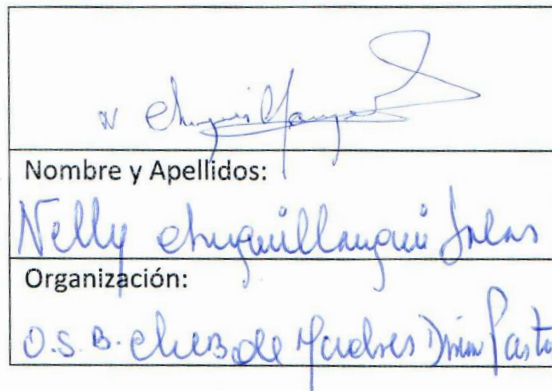 N Chuquillanqui
Nombre y Apellidos:
Nelly Chuquillanqui Salas
Organización:
O.S.B. Club de Madres Divin Pasto